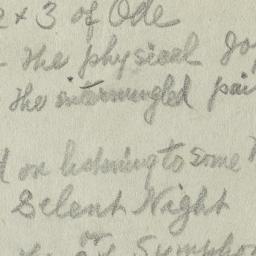 2 x 3 of Ode
- the physical Jo
the intermingled pai
d on listening to some
Silent Night
or
the Symphon